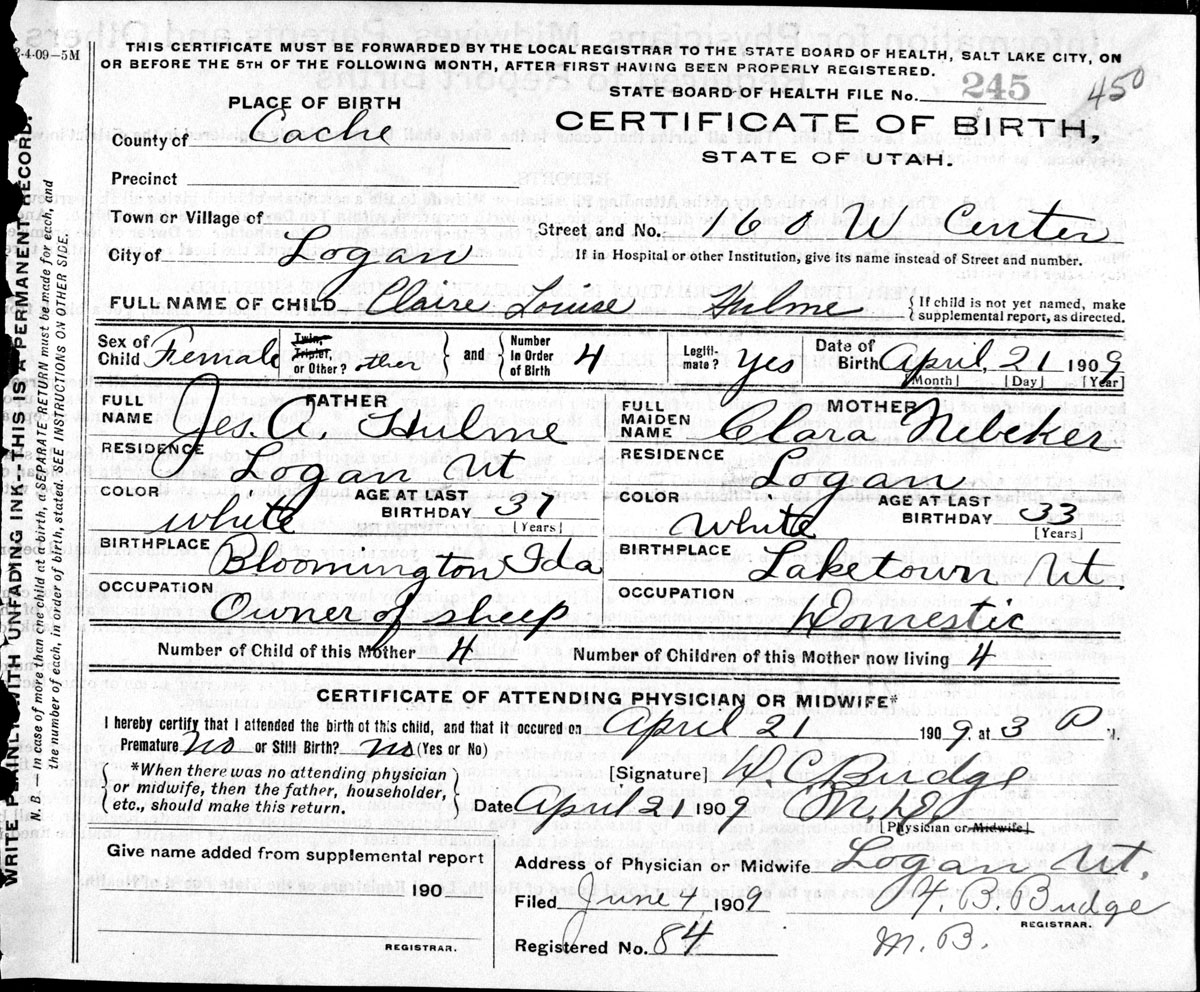 2-4-09-5M
THIS CERTIFICATE MUST BE FORWARDED BY THE LOCAL REGISTRAR TO THE STATE BOARD OF HEALTH, SALT LAKE CITY, ON
OR BEFORE THE 5TH OF THE FOLLOWING MONTH, AFTER FIRST HAVING BEEN PROPERLY REGISTERED.
STATE BOARD OF HEALTH FILE No. 245 450
PLACE OF BIRTH
CERTIFICATE OF BIRTH,
STATE OF UTAH.
County of Cache
Precinct
Town or Village of
Street and No. 160 W Center
City of Logan
If in Hospital or other Institution, give its name instead of Street and number.
FULL NAME OF CHILD Claire Louise Hulme {If child is not yet named, make supplemental report, as directed.
Sex of Child Female Twin, Triplet, or Other? other } and { Number in Order of Birth 4 Legitimate? Yes Date of Birth April, 21 1909
[Month] [Day] [Year]
FATHER
FULL NAME Jes. A. Hulme
RESIDENCE Logan Ut
COLOR white AGE AT LAST BIRTHDAY 37 [Years]
BIRTHPLACE Bloomington Ida
OCCUPATION Owner of sheep
MOTHER
FULL MAIDEN NAME Clara Nebeker
RESIDENCE Logan
COLOR White AGE AT LAST BIRTHDAY 33 [Years]
BIRTHPLACE Laketown Ut
OCCUPATION Domestic
Number of Child of this Mother 4 Number of Children of this Mother now living 4
CERTIFICATE OF ATTENDING PHYSICIAN OR MIDWIFE*
I hereby certify that I attended the birth of this child, and that it occured on April 21 1909, at 3 P M.
Premature? No or Still Birth? No (Yes or No)
{ *When there was no attending physician
or midwife, then the father, householder,
etc., should make this return. }
[Signature] D. C. Budge
Date April 21 1909 M.D.
[Physician or Midwife]
Give name added from supplemental report
190
REGISTRAR.
Address of Physician or Midwife Logan Ut.
Filed June 4, 1909 H. B. Budge
REGISTRAR.
Registered No. 84 M. B.
WRITE PLAINLY WITH UNFADING INK—THIS IS A PERMANENT RECORD.
N. B.—In case of more than one child at a birth, a SEPARATE RETURN must be made for each, and
the number of each, in order of birth, stated. SEE INSTRUCTIONS ON OTHER SIDE.